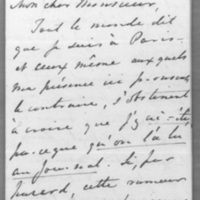 Mon cher Monsieur,
Tout le monde dit
que je suis à Paris -
et ceux même auxquels
ma présence ici prouve
le contraire, s'obstinent
à croire que j'y ai été
parceque qu'on l'a lu
au journal. Si, par
hasard, cette rumeur